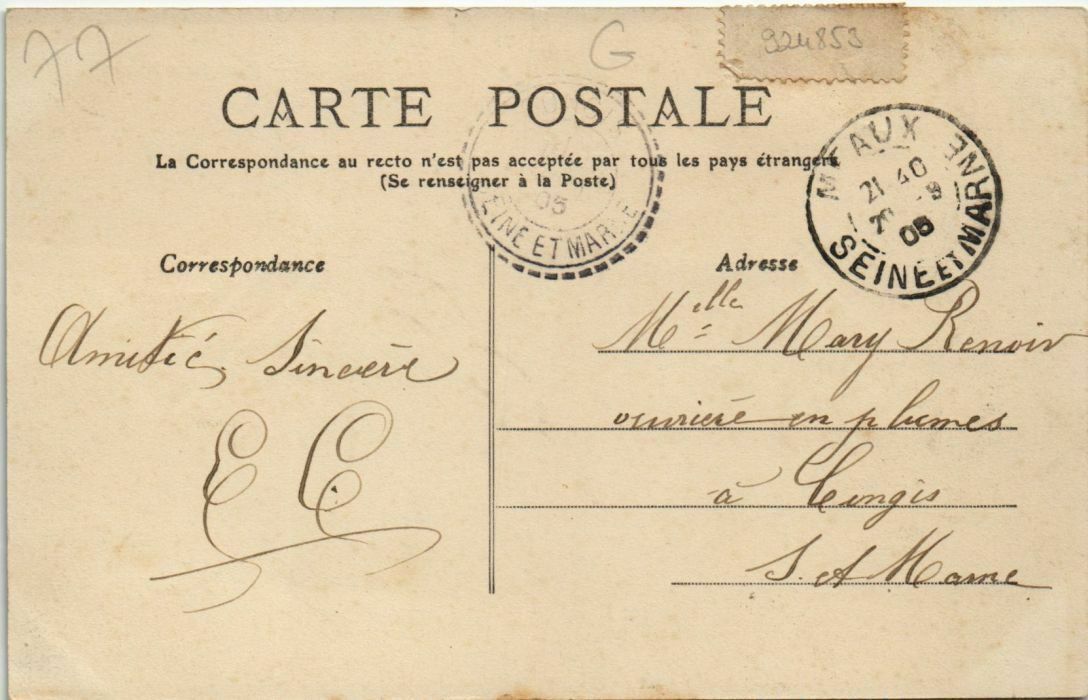 77
G
924853
CARTE POSTALE
La Correspondance au recto n'est pas acceptée par tous les pays étrangers
(Se renseigner à la Poste)
05
SEINE ET MARNE
MEAUX
21 40
9
05
SEINE ET MARNE
Correspondance
Amitié Sincère
E C
Adresse
Melle Mary Renoir
ouvrière en plumes
à Congis
S. et Marne